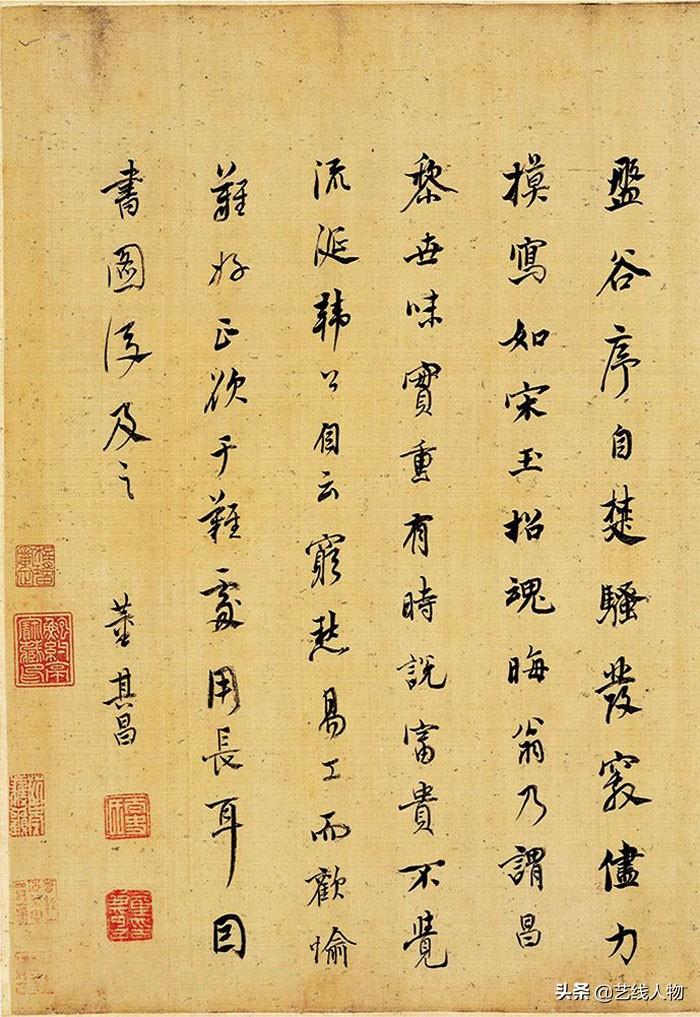 盤谷序自楚騷發竅儘力
摸寫如宋玉招魂晦翁乃謂昌
黎世味實重有時說富貴不覺
流涎韓公自云窮愁易工而歡愉
難好正欲于難處用長耳因
書圖後及之
董其昌
头条 @艺线人物